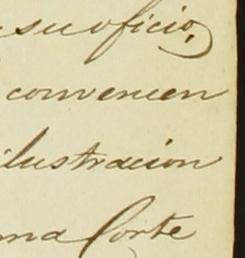 su oficio,
convenien
ilustracion
na Corte